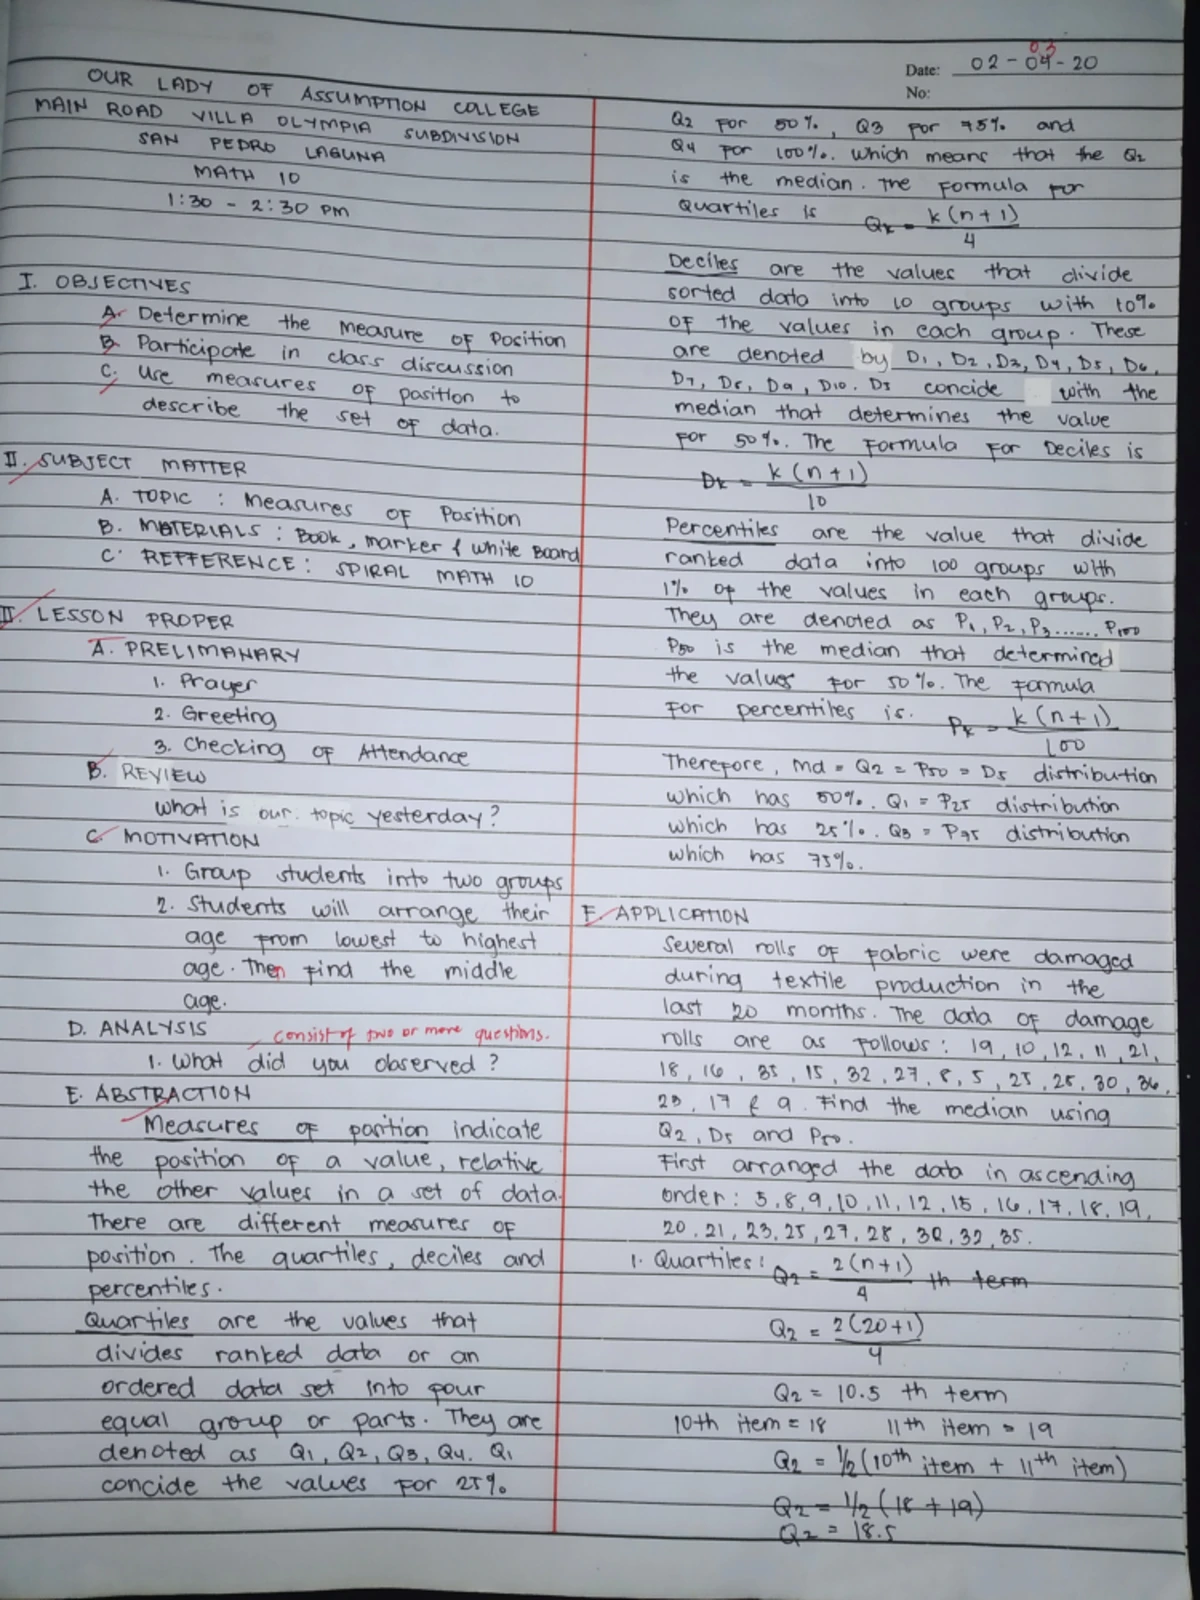 Date: 02-04-20
03
No:
OUR LADY OF ASSUMPTION COLLEGE
MAIN ROAD VILLA OLYMPIA SUBDIVISION
SAN PEDRO LAGUNA
MATH 10
1:30 - 2:30 PM
I. OBJECTIVES
A. Determine the Measure of Position
B. Participate in class discussion
C. Use measures of position to
describe the set of data.
II. SUBJECT MATTER
A. TOPIC : Measures of Position
B. MATERIALS : Book, marker & White Board
C. REFFERENCE : SPIRAL MATH 10
III. LESSON PROPER
A. PRELIMANARY
1. Prayer
2. Greeting
3. Checking of Attendance
B. REVIEW
What is our topic yesterday?
C. MOTIVATION
1. Group students into two groups
2. Students will arrange their
age from lowest to highest
age. Then find the middle
age.
D. ANALYSIS
consist of two or more questions.
1. What did you observed?
E. ABSTRACTION
Measures of position indicate
the position of a value, relative
the other values in a set of data.
There are different measures of
position. The quartiles, deciles and
percentiles.
Quartiles are the values that
divides ranked data or an
ordered data set into four
equal group or parts. They are
denoted as Q1, Q2, Q3, Q4. Q1
concide the values for 25%
Q2 for 50%, Q3 for 75% and
Q4 for 100%. Which means that the Q2
is the median. The Formula for
Quartiles is Qk = k(n+1)
4
Deciles are the values that divide
sorted data into 10 groups with 10%
of the values in each group. These
are denoted by D1, D2, D3, D4, D5, D6,
D7, D8, D9, D10. D5 concide with the
median that determines the value
for 50%. The Formula for Deciles is
Dk = k(n+1)
10
Percentiles are the value that divide
ranked data into 100 groups with
1% of the values in each groups.
They are denoted as P1, P2, P3....... P100
P50 is the median that determined
the values for 50%. The formula
for percentiles is. Pk = k(n+1)
100
Therefore, Md = Q2 = P50 = D5 distribution
which has 50%. Q1 = P25 distribution
which has 25%. Q3 = P75 distribution
which has 75%.
F. APPLICATION
Several rolls of fabric were damaged
during textile production in the
last 20 months. The data of damage
rolls are as follows: 19, 10, 12, 11, 21,
18, 16, 35, 15, 32, 27, 8, 5, 25, 28, 30, 36,
23, 17 & 9. Find the median using
Q2, D5 and P50.
First arranged the data in ascending
order: 5, 8, 9, 10, 11, 12, 15, 16, 17, 18, 19,
20, 21, 23, 25, 27, 28, 30, 32, 35.
1. Quartiles: Q2 = 2(n+1) th term
4
Q2 = 2(20+1)
4
Q2 = 10.5 th term
10th item = 18 11th item = 19
Q2 = 1/2 (10th item + 11th item)
Q2 = 1/2 (18 + 19)
Q2 = 18.5